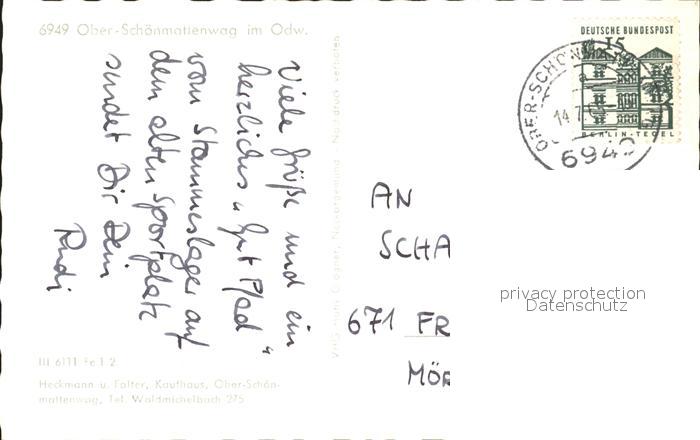 6949 Ober-Schönmattenwag im Odw.
Viele Grüße und ein
herzliches „Gut Pfad"
vom Stammeslager auf
dem alten Sportplatz
sendet Dir Dein
Rudi
III 6111 Fe 1 2
Heckmann u. Falter, Kaufhaus, Ober-Schön-
mattenwag, Tel. Waldmichelbach 275
Nachdruck verboten
DEUTSCHE BUNDESPOST
15
BERLIN-TEGEL
OBER-SCHÖN
14.7
6949
AN
SCHA
671 FR
MÖR
privacy protection
Datenschutz